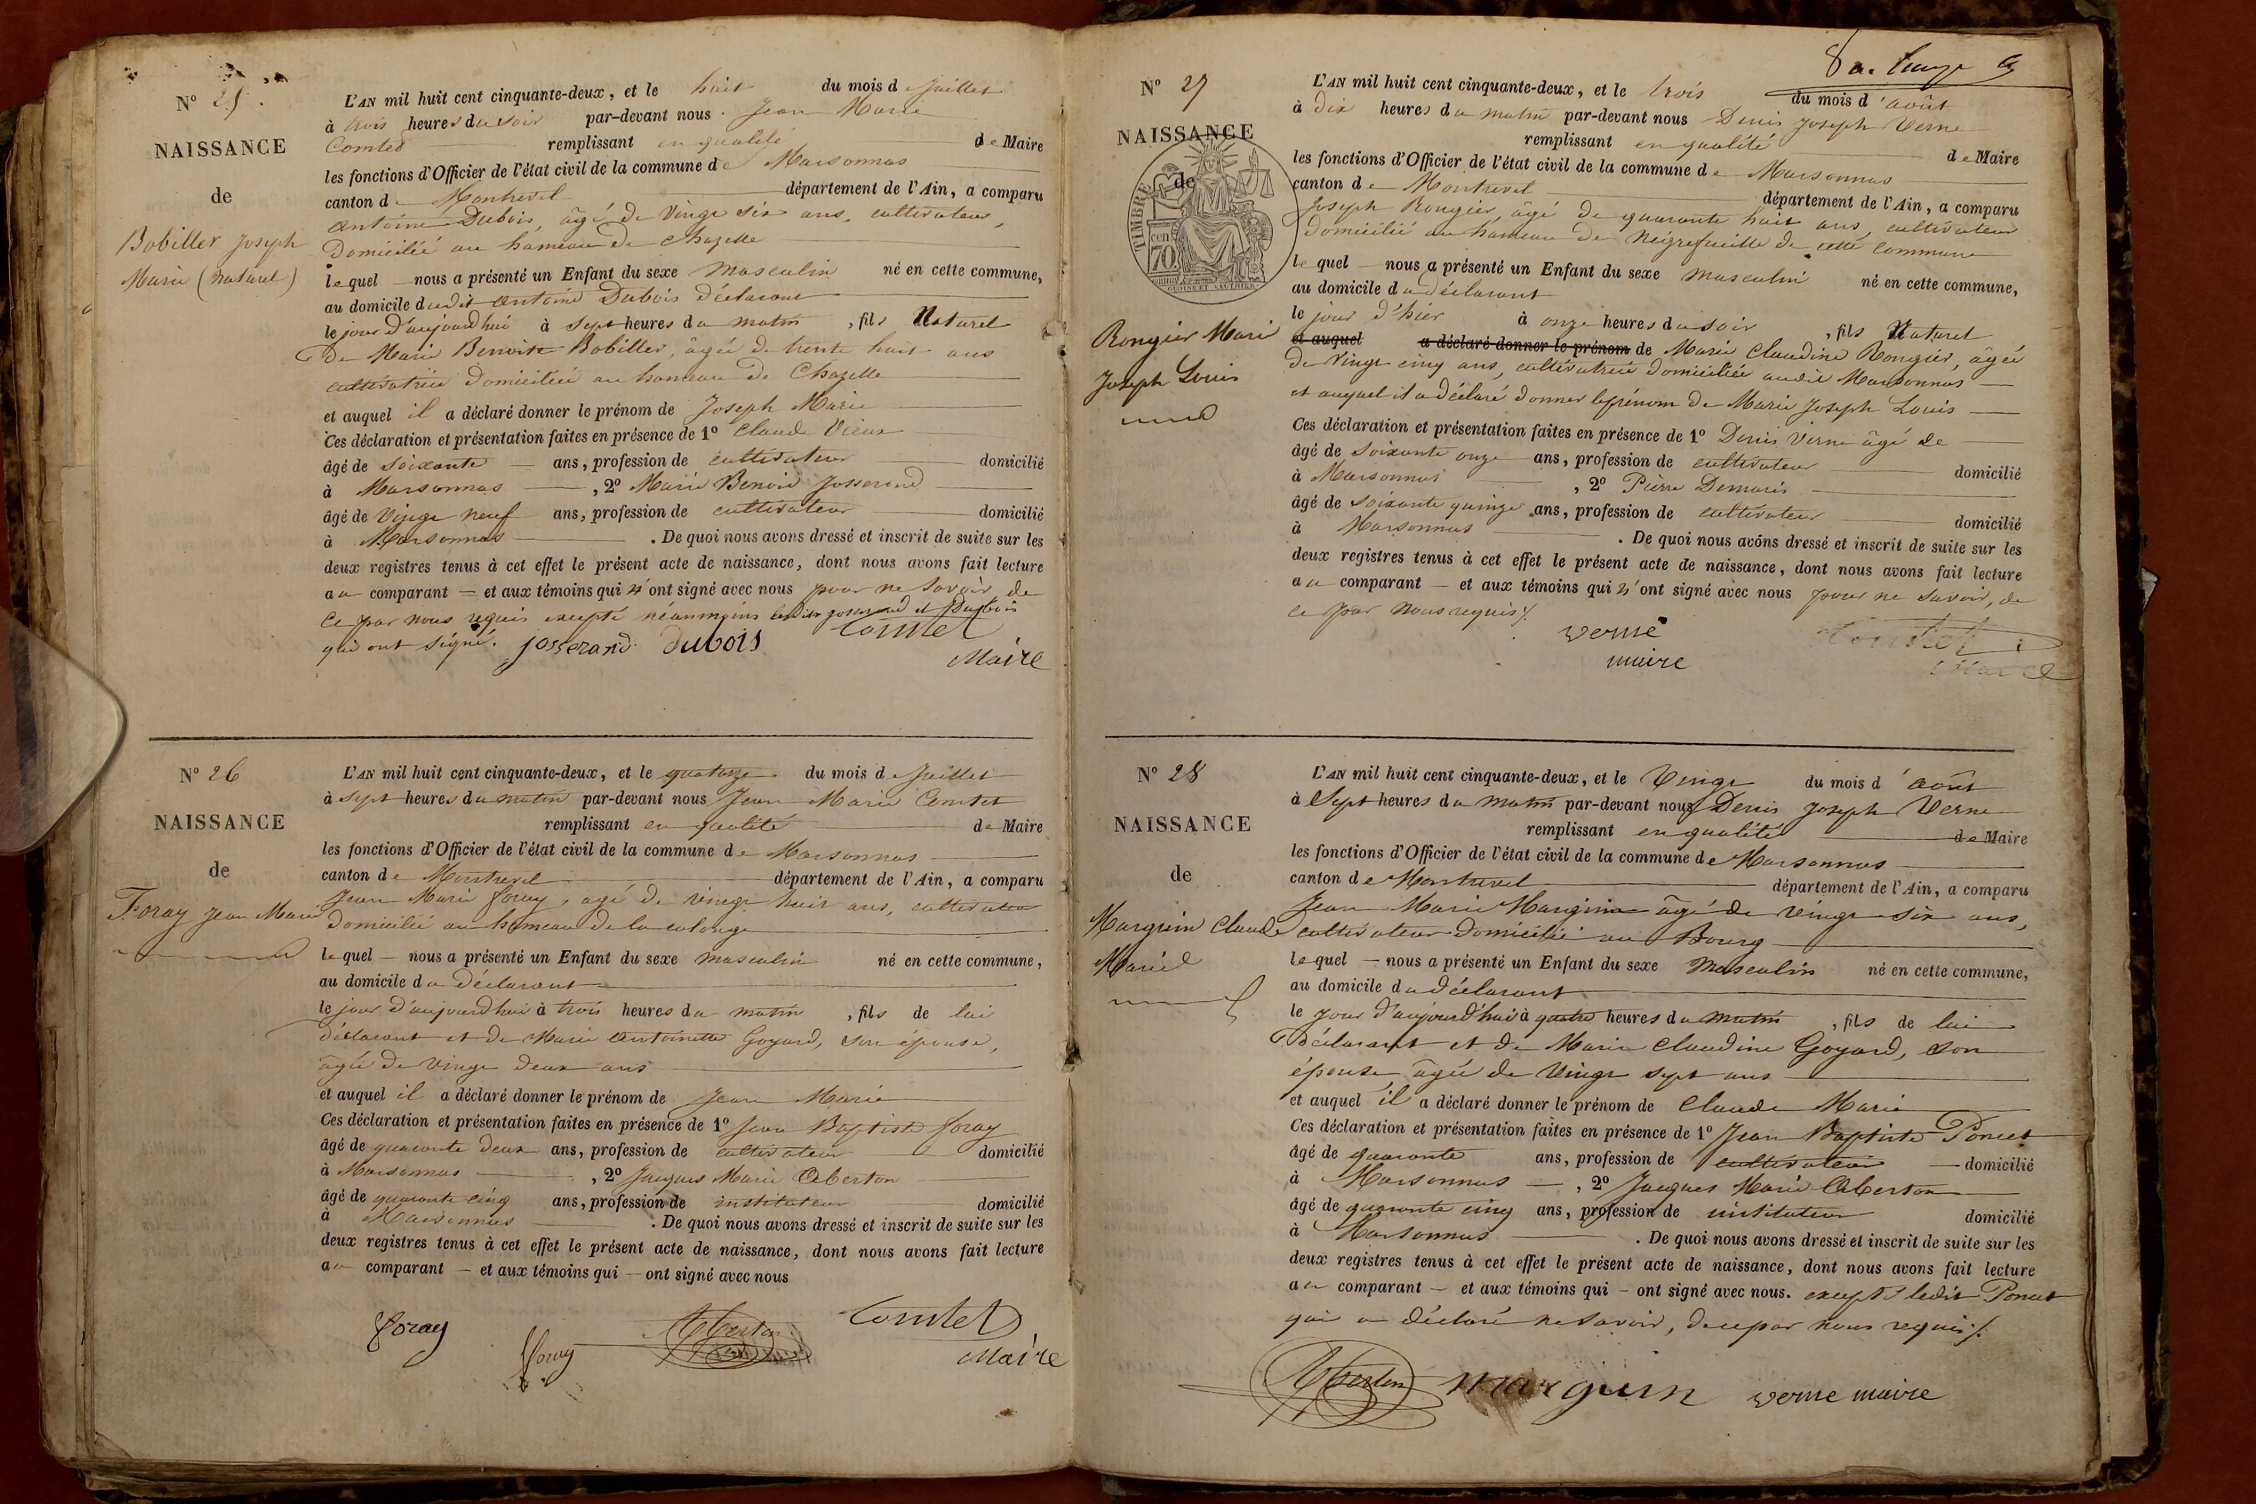 N° 25.
NAISSANCE
de
Bobiller Joseph
Marie (naturel)
L'AN mil huit cent cinquante-deux, et le huit du mois de Juillet
à trois heures du soir par-devant nous Jean Marie
Comtet remplissant en qualité de Maire
les fonctions d'Officier de l'état civil de la commune de Marsonnas
canton de Montrevel département de l'Ain, a comparu
Antoine Dubois, âgé de vingt six ans, cultivateur,
Domicilié au hameau de Chazelle
lequel nous a présenté un Enfant du sexe masculin né en cette commune,
au domicile dudit Antoine Dubois déclarant
le jour d'aujourd'hui à sept heures du matin, fils Naturel
de Marie Benoite Bobiller, âgée de trente huit ans
cultivatrice domiciliée au hameau de Chazelle
et auquel il a déclaré donner le prénom de Joseph Marie
Ces déclaration et présentation faites en présence de 1° Claude Vieux
âgé de soixante ans, profession de cultivateur domicilié
à Marsonnas, 2° Marie Benoit Josserand
âgé de vingt neuf ans, profession de cultivateur domicilié
à Marsonnas. De quoi nous avons dressé et inscrit de suite sur les
deux registres tenus à cet effet le présent acte de naissance, dont nous avons fait lecture
au comparant et aux témoins qui n'ont signé avec nous pour ne savoir de
ce par nous requis excepté néanmoins Josserand et Dubois
qui ont signé. josserand dubois Comtet
Maire
N° 26
NAISSANCE
de
Foray Jean Marie
L'AN mil huit cent cinquante-deux, et le quatorze du mois de Juillet
à sept heures du matin par-devant nous Jean Marie Comtet
remplissant en qualité de Maire
les fonctions d'Officier de l'état civil de la commune de Marsonnas
canton de Montrevel département de l'Ain, a comparu
Jean Marie foray, âgé de vingt huit ans, cultivateur
domicilié au hameau de la
lequel nous a présenté un Enfant du sexe masculin né en cette commune,
au domicile du déclarant
le jour d'aujourd'hui à trois heures du matin, fils de lui
déclarant et de Marie Antoinette Goyard, son épouse,
âgée de vingt deux ans
et auquel il a déclaré donner le prénom de Jean Marie
Ces déclaration et présentation faites en présence de 1° Jean Baptiste foray
âgé de quarante deux ans, profession de cultivateur domicilié
à Marsonnas, 2° Jacques Marie Aberton
âgé de quarante cinq ans, profession de instituteur domicilié
à Marsonnas. De quoi nous avons dressé et inscrit de suite sur les
deux registres tenus à cet effet le présent acte de naissance, dont nous avons fait lecture
au comparant et aux témoins qui ont signé avec nous
foray foray Aberton Comtet
Maire
N° 27
NAISSANCE
de
TIMBRE
70
Rongier Marie
Joseph Louis
L'AN mil huit cent cinquante-deux, et le trois du mois d'août
à dix heures du matin par-devant nous Denis Joseph Verne
remplissant en qualité de Maire
les fonctions d'Officier de l'état civil de la commune de Marsonnas
canton de Montrevel département de l'Ain, a comparu
Joseph Rongier, âgé de quarante huit ans, cultivateur
domicilié au hameau de Négrefeuille de cette commune
lequel nous a présenté un Enfant du sexe masculin né en cette commune,
au domicile du déclarant
le jour d'hier à onze heures du soir, fils Naturel
et auquel a déclaré donner le prénom de Marie Claudine Rongier, âgée
de vingt cinq ans, cultivatrice domiciliée audit Marsonnas
et auquel il a déclaré donner le prénom de Marie Joseph Louis
Ces déclaration et présentation faites en présence de 1° Denis Verne âgé de
âgé de soixante onze ans, profession de cultivateur domicilié
à Marsonnas, 2° Pierre Demaris
âgé de soixante quinze ans, profession de cultivateur domicilié
à Marsonnas. De quoi nous avons dressé et inscrit de suite sur les
deux registres tenus à cet effet le présent acte de naissance, dont nous avons fait lecture
au comparant et aux témoins qui n'ont signé avec nous pour ne savoir, de
ce par nous requis /.
verne Comtet
maire Maire
N° 28
NAISSANCE
de
Marguin Claude
Marie
L'AN mil huit cent cinquante-deux, et le vingt du mois d'août
à sept heures du matin par-devant nous Denis Joseph Verne
remplissant en qualité de Maire
les fonctions d'Officier de l'état civil de la commune de Marsonnas
canton de Montrevel département de l'Ain, a comparu
Jean Marie Marguin âgé de vingt six ans,
cultivateur domicilié au Bourg
lequel nous a présenté un Enfant du sexe masculin né en cette commune,
au domicile du déclarant
le jour d'aujourd'hui à quatre heures du matin, fils de lui
déclarant et de Marie Claudine Goyard, son
épouse, âgée de vingt sept ans
et auquel il a déclaré donner le prénom de Claude Marie
Ces déclaration et présentation faites en présence de 1° Jean Baptiste Poncet
âgé de quarante ans, profession de cultivateur domicilié
à Marsonnas, 2° Jacques Marie Aberton
âgé de quarante cinq ans, profession de instituteur domicilié
à Marsonnas. De quoi nous avons dressé et inscrit de suite sur les
deux registres tenus à cet effet le présent acte de naissance, dont nous avons fait lecture
au comparant et aux témoins qui ont signé avec nous. excepté ledit Poncet
qui a déclaré ne savoir, de ce par nous requis /.
Aberton marguin verne maire